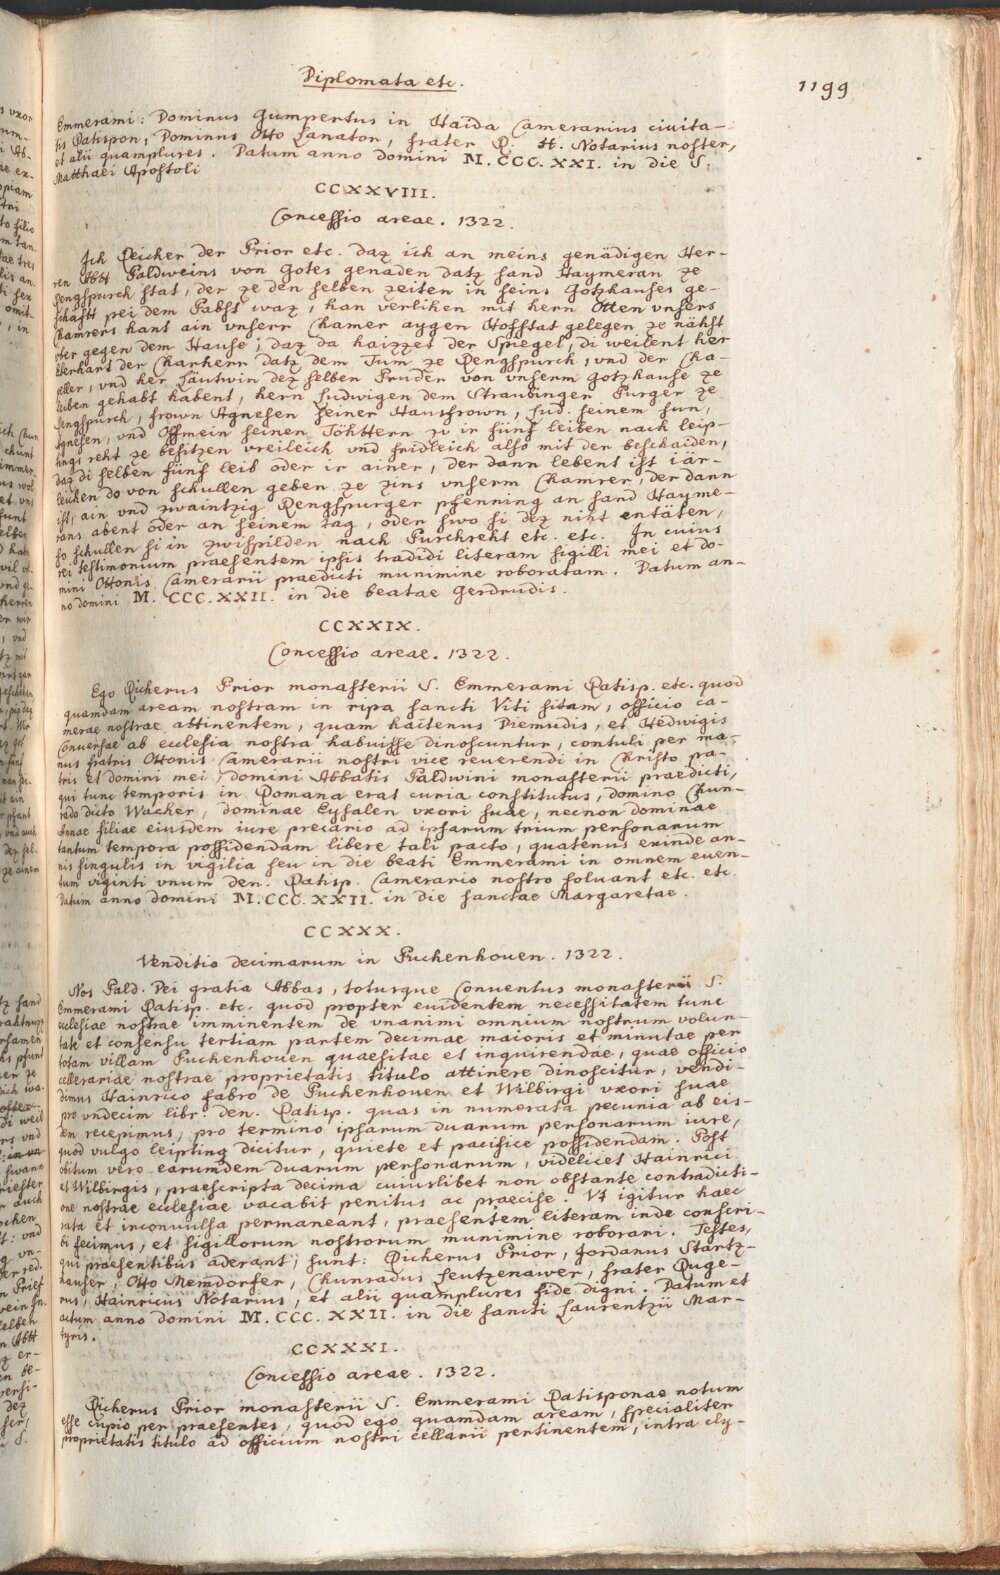 Diplomata etc.
1199
Emmerami: Dominus Gumpertus in Haida Camerarius civita-
tis Ratispon, Dominus Otto Zanator, frater R. H. Notarius noster,
et alii quamplures. Datum anno domini M.CCC.XXI. in die S.
Matthaei Apostoli
CCXXVIII.
Concessio areae. 1322.
Ich Reicher der Prior etc. daz ich an meins genädigen Her-
ren Abtt Paldweins von Gotes genaden datz sand Haymeran ze
Rengspurch stat, der ze den selben zeiten in seins Gotzhauses ge-
schäfft pei dem Pabst waz, han verlihen mit hern Otten vnsers
Chamrers hant ain vnserr Chamer aygen Hofstat gelegen ze nähst
vber gegen dem Hause, daz da haizzet der Spiegel, di weilent her
Eberhart der Charherr datz dem Tum ze Rengspurch, vnd der Cha-
peller, vnd her Läutwin dez selben Pruder von vnserm Gotzhause ze
leiben gehabt habent, hern Ludwigen dem Straubinger Purger ze
Rengspurch, frown Agnesen seiner Hausfrown, Lud. seinem sun,
Agnesen, vnd Offmein seinen Töhttern zu ir fünf leiben nach leip-
tings reht ze besitzen vreileich vnd fridleich also mit der beschaiden,
daz di selben fünf leib oder ir ainer, der dann lebent ist iär-
leichen do von schullen geben ze zins vnserm Chamrer, der dann
ist, ain vnd zwaintzig Rengspurger pfenning an sand Hayme-
rans abent oder an seinem tag, oder swo si dez niht entäten,
so schullen si in zwispilden nach Purchreht etc. etc. In cuius
rei testimonium praesentem ipsis tradidi literam sigilli mei et do-
mini Ottonis Camerarii praedicti munimine roboratam. Datum an-
no domini M. CCC.XXII. in die beatae Gerdrudis.
CCXXIX.
Concessio areae. 1322.
Ego Richerus Prior monasterii S. Emmerami Ratisp. etc. quod
quamdam aream nostram in ripa sancti Viti sitam, officio ca-
merae nostrae attinentem, quam hactenus Diemudis, et Hedwigis
Conuersae ab ecclesia nostra habuisse dinoscuntur, contuli per ma-
nus fratris Ottonis Camerarii nostri vice reuerendi in Christo pa-
tris et domini mei domini Abbatis Paldwini monasterii praedicti,
qui tunc temporis in Romana erat curia constitutus, domino Chun-
rado dicto Wacher, dominae Eysalen vxori suae, necnon dominae
Annae filiae eiusdem iure precario ad ipsarum trium personarum
tantum tempora possidendam libere tali pacto, quatenus exinde an-
nis singulis in vigilia seu in die beati Emmerami in omnem euen-
tum viginti vnum den. Ratisp. Camerario nostro soluant etc. etc.
Datum anno domini M.CCC.XXII. in die sanctae Margaretae.
CCXXX.
Venditio decimarum in Puchenhouen. 1322.
Nos Pald. Dei gratia Abbas, toturque Conuentus monasterii S.
Emmerami Ratisp. etc. quod propter euidentem necessitatem tunc
ecclesiae nostrae imminentem de vnanimi omnium nostrum volun-
tate et consensu tertiam partem decimae maioris et minutae per
totam villam Puchenhouen quaesitae et inquirendae, quae officio
cellerariae nostrae proprietatis titulo attinere dinoscitur, vendi-
dimus Hainrico fabro de Puchenhouen et Wilbirgi vxori suae
pro vndecim libr. den. Ratisp. quas in numerata pecunia ab eis-
dem recepimus, pro termino ipsarum duarum personarum iure,
quod vulgo leipting dicitur, quiete et pacifice possidendam. Post
obitum vero earumdem duarum personarum, videlicet Hainrici
et Wilbirgis, praescripta decima cuiuslibet non obstante contradicti-
one nostrae ecclesiae vacabit penitus ac praecise. Vt igitur haec
rata et inconuulsa permaneant, praesentem literam inde conscri-
bi fecimus, et sigillorum nostrorum munimine roborari. Testes,
qui praesentibus aderant, sunt: Richerus Prior, Jordanus Startz-
hauser, Otto Memdorfer, Chunradus Leutzenawer, frater Ruge-
rus, Hainricus Notarius, et alii quamplures fide digni. Datum et
actum anno domini M.CCC.XXII. in die sancti Laurentzii Mar-
tyris.
CCXXXI.
Concessio areae. 1322.
Richerus Prior monasterii S. Emmerami Ratisponae notum
esse cupio per praesentes, quod ego quamdam aream, specialiter
proprietatis titulo ad officium nostri cellarii pertinentem, intra cly-